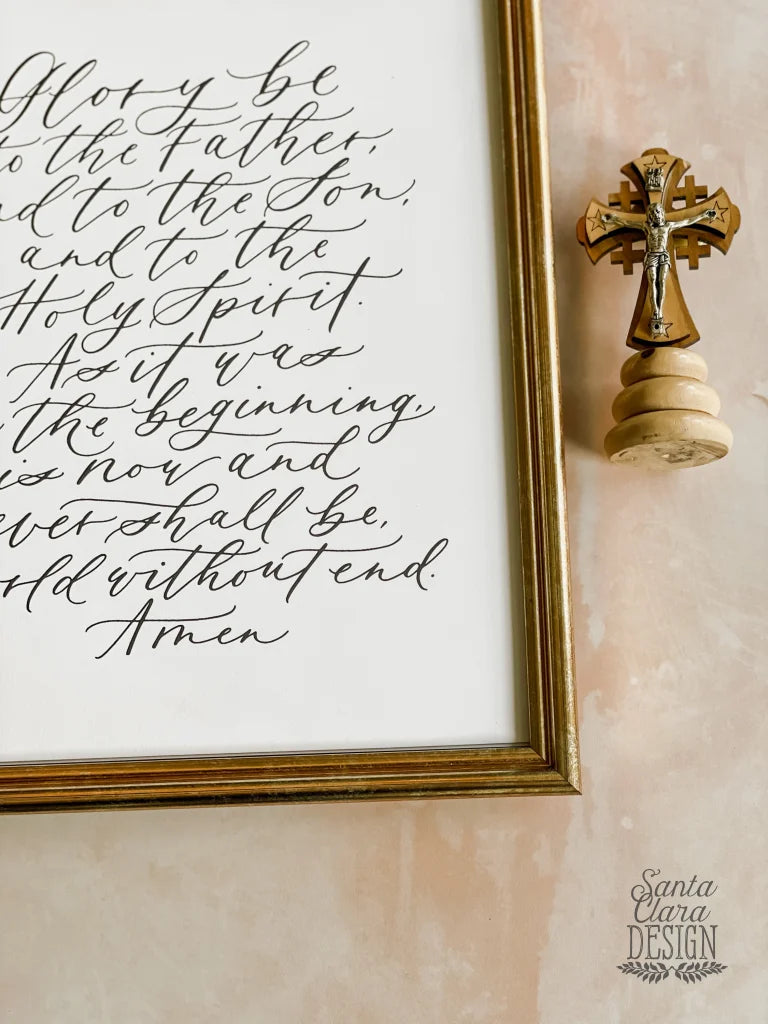 Glory be
to the Father,
nd to the Son,
and to the
Holy Spirit.
As it was
the beginning,
is now and
ever shall be,
rld without end.
Amen
Santa
Clara
DESIGN